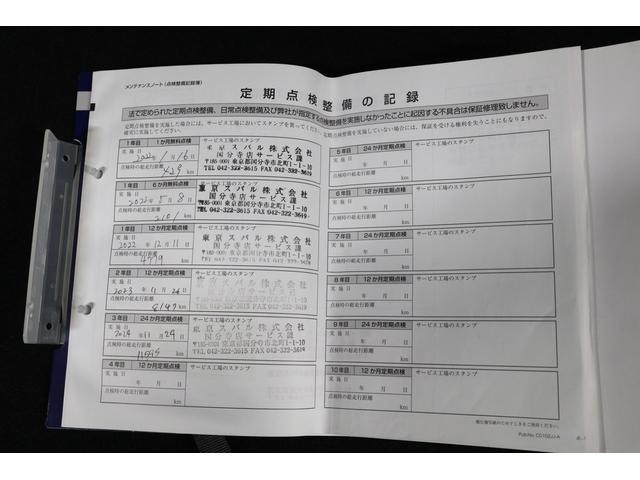 メンテナンスノート（点検整備記録簿）
定期点検整備の記録
法で定められた定期点検整備、日常点検整備及び弊社が指定する点検整備を実施しなかったことに起因する不具合は保証修理致しません。
定期点検整備を実施した場合には、サービス工場においてスタンプを貰ってください。定期点検整備を実施していない場合には、保証を受ける権利を失うことにもなりますので、
確実に実施してください。
1年目 1か月無料点検 サービス工場のスタンプ
実施日
2022年1月16日
点検時の総走行距離
429 km
東京スバル株式会社
国分寺店サービス課
〒185-0001 東京都国分寺市北町1-1-10
TEL 042-322-3615 FAX 042-322-3619
1年目 6か月無料点検 サービス工場のスタンプ
実施日
2022年5月8日
点検時の総走行距離
2101 km
東京スバル株式会社
国分寺店サービス課
〒185-0001 東京都国分寺市北町1-1-10
TEL 042-322-3615 FAX 042-322-3619
1年目 12か月定期点検 サービス工場のスタンプ
実施日
2022年12月11日
点検時の総走行距離
km
東京スバル株式会社
国分寺店サービス課
〒185-0001 東京都国分寺市北町1-1-10
TEL 042-322-3615 FAX 042-322-3619
2年目 12か月定期点検 サービス工場のスタンプ
実施日
2023年11月26日
点検時の総走行距離
8147 km
東京スバル株式会社
国分寺店サービス課
〒185-0001 東京都国分寺市北町1-1-10
TEL 042-322-3615 FAX 042-322-3619
3年目 24か月定期点検 サービス工場のスタンプ
実施日
2024年11月29日
点検時の総走行距離
km
東京スバル株式会社
国分寺店サービス課
〒185-0001 東京都国分寺市北町1-1-10
TEL 042-322-3615 FAX 042-322-3619
4年目 12か月定期点検 サービス工場のスタンプ
実施日
年 月 日
点検時の総走行距離
km
5年目 24か月定期点検 サービス工場のスタンプ
実施日
年 月 日
点検時の総走行距離
km
6年目 12か月定期点検 サービス工場のスタンプ
実施日
年 月 日
点検時の総走行距離
km
7年目 24か月定期点検 サービス工場のスタンプ
実施日
年 月 日
点検時の総走行距離
km
8年目 12か月定期点検 サービス工場のスタンプ
実施日
年 月 日
点検時の総走行距離
km
9年目 24か月定期点検 サービス工場のスタンプ
実施日
年 月 日
点検時の総走行距離
km
10年目 12か月定期点検 サービス工場のスタンプ
実施日
年 月 日
点検時の総走行距離
km
Pub.No. C0102JJ-A